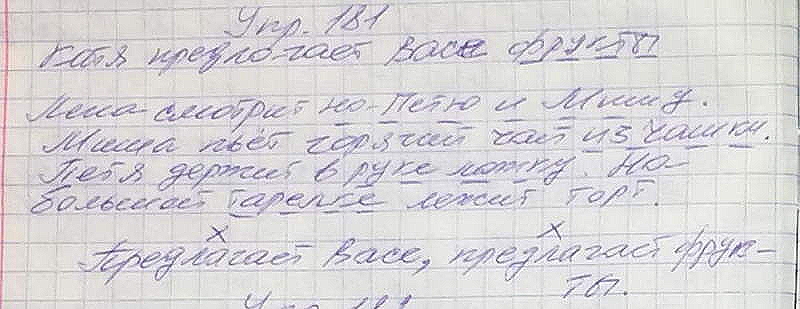 Упр. 181
Катя предлогает Васе фрукты
Лена смотрит на Петю и Мишу.
Миша пьёт горячий чай из чашки.
Петя держит в руке ложку. На
большой тарелке лежит торт.
х х
Предлагает Васе, предлагает фрук-
ты.
Упр. 181